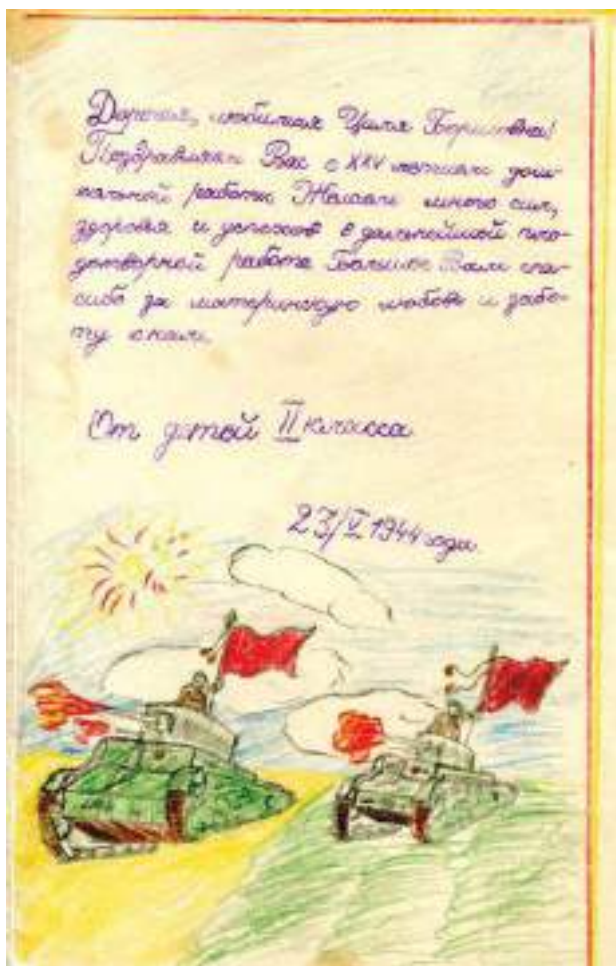 Дорогая, любимая Циля Борисовна!
Поздравляем Вас с XXV летием дош-
кольной работы Желаем много сил,
здоровья и успехов в дальнейшей пло-
дотворной работе Большое Вам спа-
сибо за материнскую любовь и забо-
ту о нас.
От детей II класса
23/V 1944 года